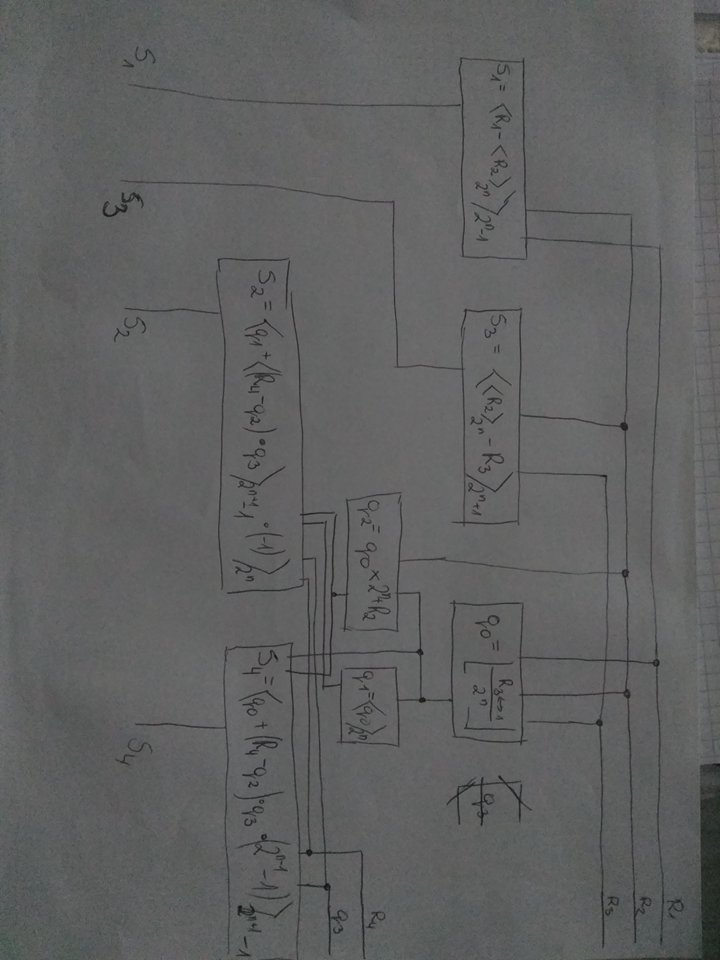 R1
R2
R3
S1 = ⟨R1-⟨R2⟩2^n⟩2^n-1
S3 = ⟨⟨R2⟩2^n - R3⟩2^n+1
q0 = ⌊R3↔1 / 2^n⌋
q3
q2 = q0 × 2^n + R2
q1 = ⟨q0⟩2^n
R4
q3
S2 = ⟨q1 + ⟨(R4-q2)·q3⟩2^n+1-1 · (-1)⟩2^n
S4 = ⟨q0 + (R4-q2)·q3·(2^n-1-1)⟩2^n+1-1
S1
S3
S2
S4